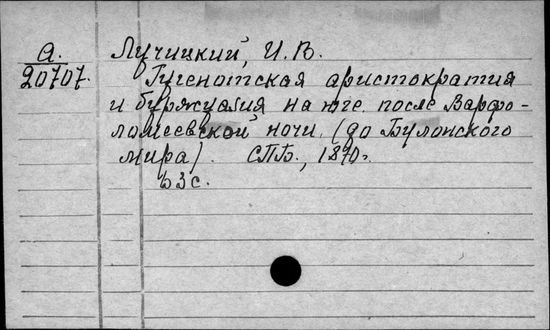 А.
20707.
Лучицкий, И. В.
Гугенотская аристократия
и буржуазия на юге после Варфо-
ломеевской ночи (до Булонского
мира). СПБ., 1870 г.
63 с.